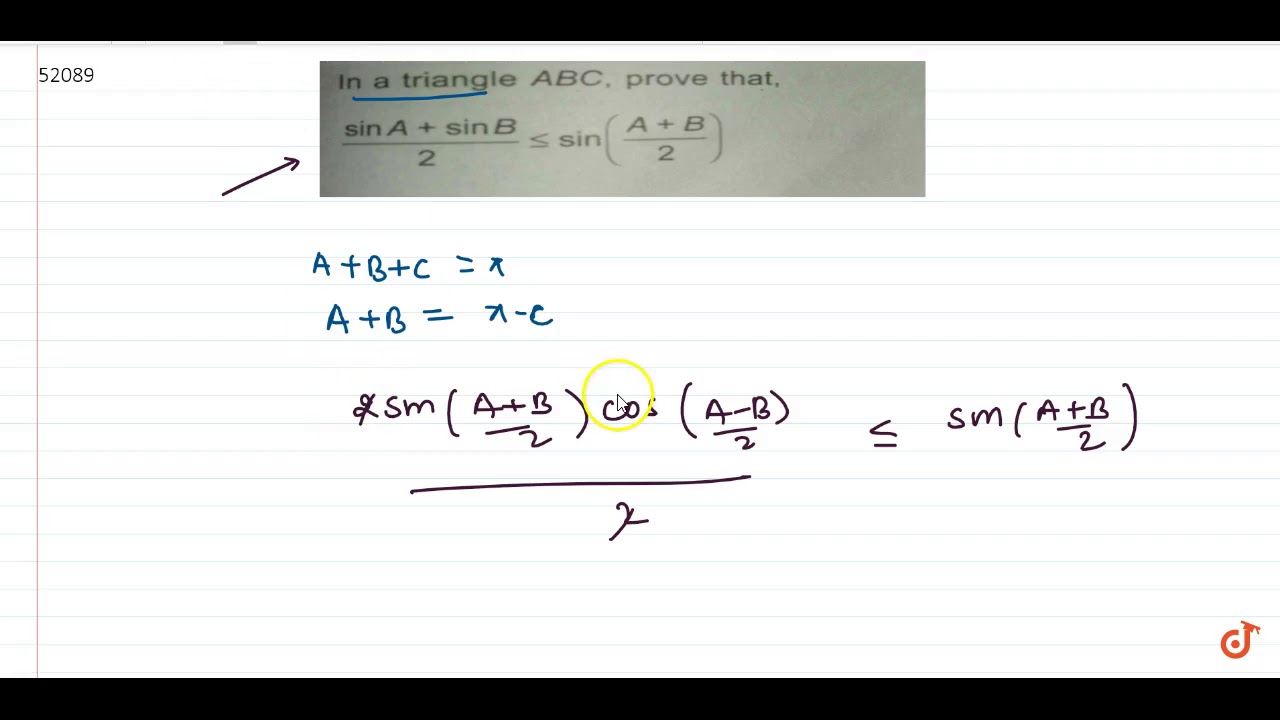 52089
In a triangle ABC, prove that,
(sin A + sin B)/2 ≤ sin((A + B)/2)
A+B+C = π
A+B = π-C
(2 sin((A+B)/2) cos((A-B)/2))/2 ≤ sin((A+B)/2)